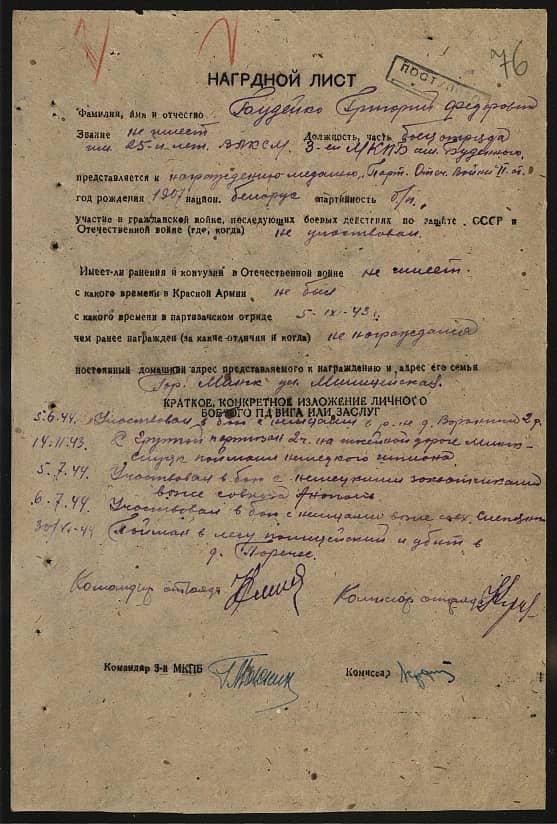 76
ПОСТУПИЛ
НАГРДНОЙ ЛИСТ
Фамилия, имя и отчество Гаудейко Григорий Федорович
Звание не имеет Должность, часть боец отряда
им. 25-и лет. ВЛКСМ. 3-ей МКПБ им. Буденного.
представляется к награждению медалью „Парт. Отеч. Войны" II ст.
год рождения 1907 национ. белорус партийность б/п.
участие в гражданской войне, последующих боевых действиях по защите СССР и
Отечественной войне (где, когда) не участвовал.
Имеет-ли ранения и контузии в Отечественной войне не имеет.
с какого времени в Красной Армии не был
с какого времени в партизанском отряде 5-IX-43 г.
чем ранее награжден (за какие отличия и когда) не награждался
постоянный домашний адрес представляемого к награждению и адрес его семьи
Гор. Минск ул. Милицейская.
КРАТКОЕ, КОНКРЕТНОЕ ИЗЛОЖЕНИЕ ЛИЧНОГО
БОЕВОГО ПДВИГА ИЛИ ЗАСЛУГ
5.6.44. Участвовал в бою с немцами в р-не д.
14.11.43. С группой партизан 2 ч. на шоссейной дороге Минск-
Слуцк поймали немецкого шпиона.
5.7.44. Участвовал в бою с немецкими захватчиками
возле совхоза
6.7.44. Участвовал в бою с немцами возле
Поймал в лесу полицейский и убит в
д. Поречье.
Командир отряда
Комиссар отряда
Командир 3-й МКПБ
Комиссар